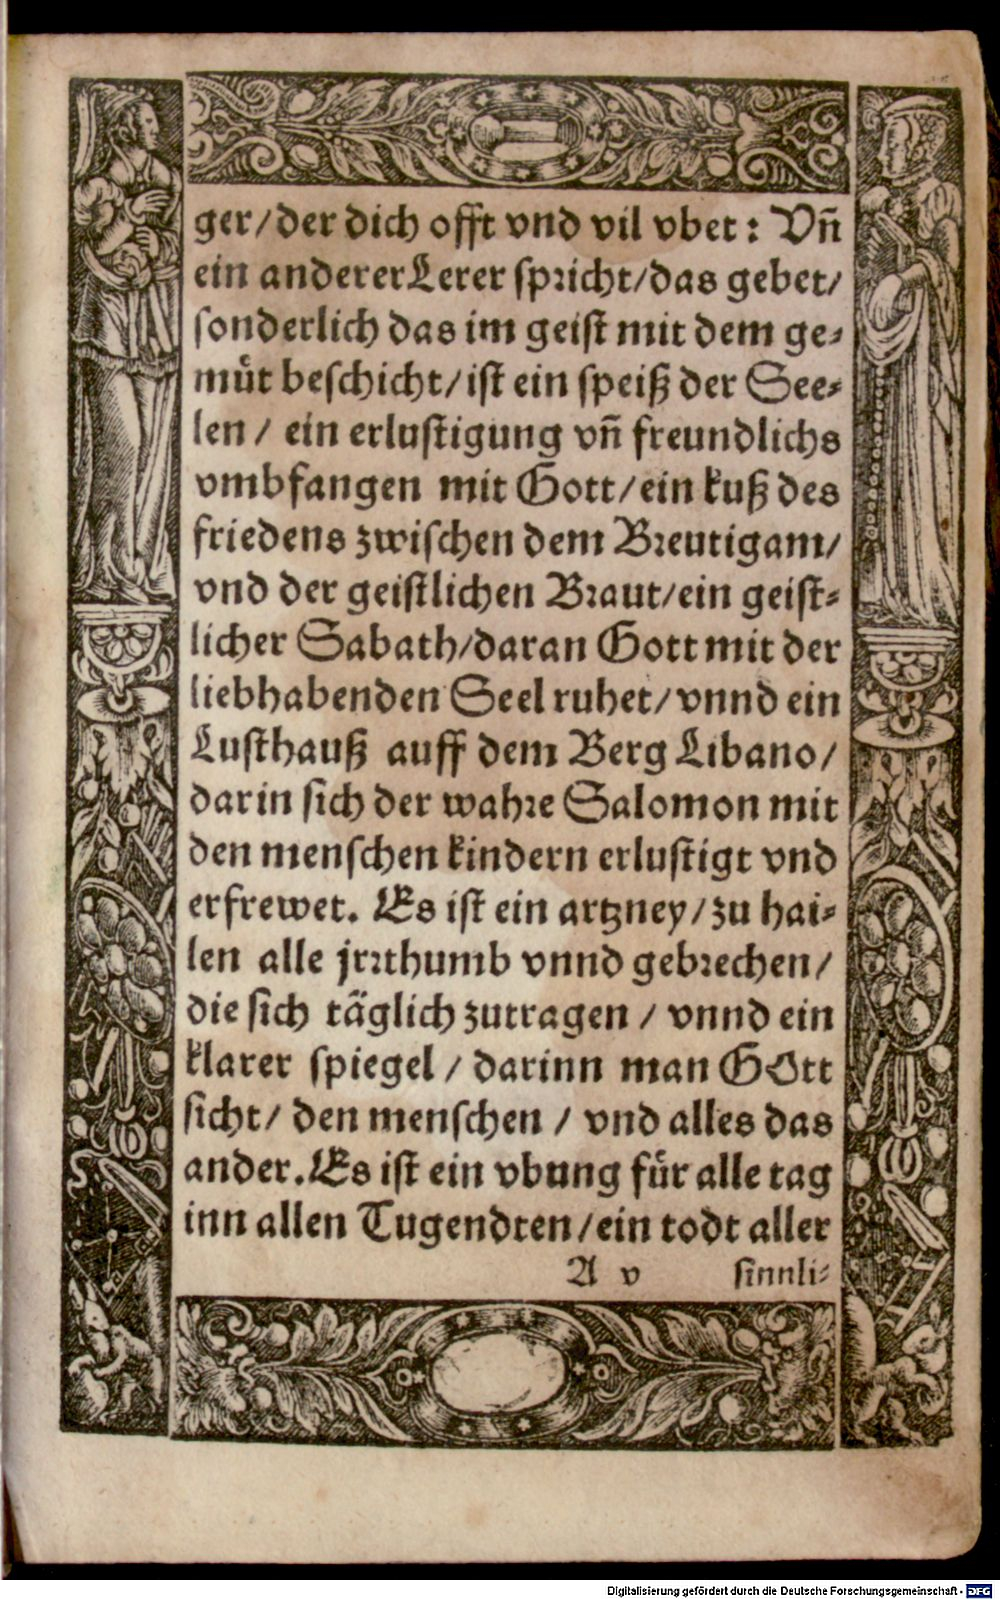 ger/der dich offt vnd vil vbet: Vñ
ein anderer Lerer spricht/das gebet/
sonderlich das im geist mit dem ge⸗
muͤt beschicht/ist ein speiß der See⸗
len / ein erlustigung vñ freundlichs
vmbfangen mit Gott/ein kuß des
friedens zwischen dem Breutigam/
vnd der geistlichen Braut/ein geist⸗
licher Sabath/daran Gott mit der
liebhabenden Seel ruhet/vnnd ein
Lusthauß auff dem Berg Libano/
darin sich der wahre Salomon mit
den menschen kindern erlustigt vnd
erfrewet. Es ist ein artzney/zu hai⸗
len alle jrrthumb vnnd gebrechen/
die sich täglich zutragen / vnnd ein
klarer spiegel / darinn man GOtt
sicht/ den menschen / vnd alles das
ander. Es ist ein vbung fuͤr alle tag
inn allen Tugendten/ein todt aller
A v sinnli⸗
Digitalisierung gefördert durch die Deutsche Forschungsgemeinschaft - DFG